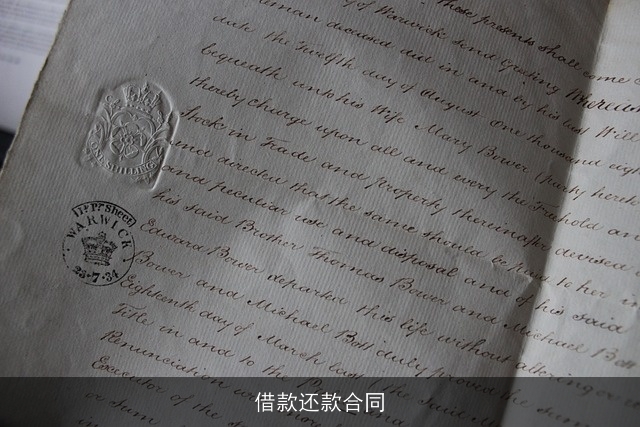 these presents shall come
of Warwick send Greeting Whereas
deceased did in and by his last Will
date the Twelfth day of August One thousand eigh
bequeath unto his Wife Mary Bower (party here
thereby charge upon all and every the Freehold an
Stock in Trade and property thereinafter devised
and directed that the same should be paid to her
and peculiar use and disposal and of his said
his said Brother Thomas Bower and Michael Bott
Edward Bower departed this life without altering
Bower and Michael Bott duly proved the same
Eighteenth day of March last (the said
Title in and to the
Renunciation
Executor of the
or sum
ONE SHILLING
11 Pr Sheet
WARWICK
23·7·34
借款还款合同